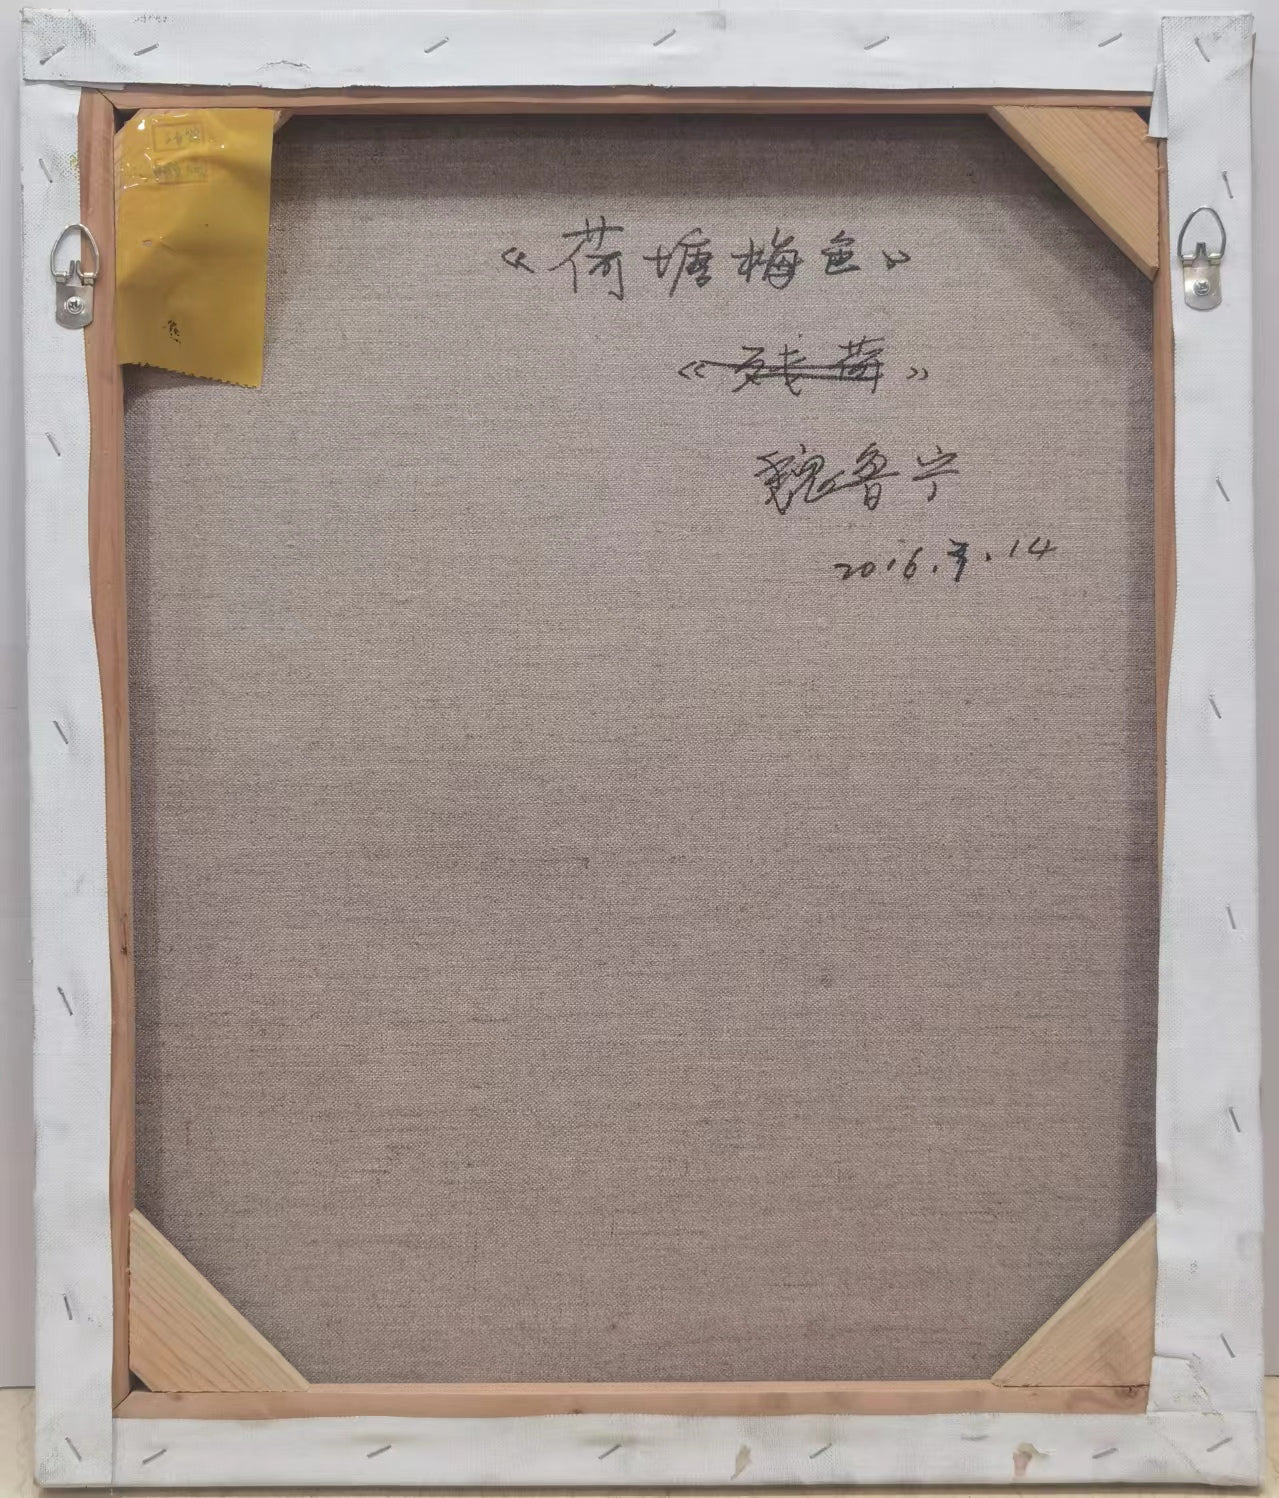 《荷塘梅色》
《残荷》
魏鲁宁
2016.3.14